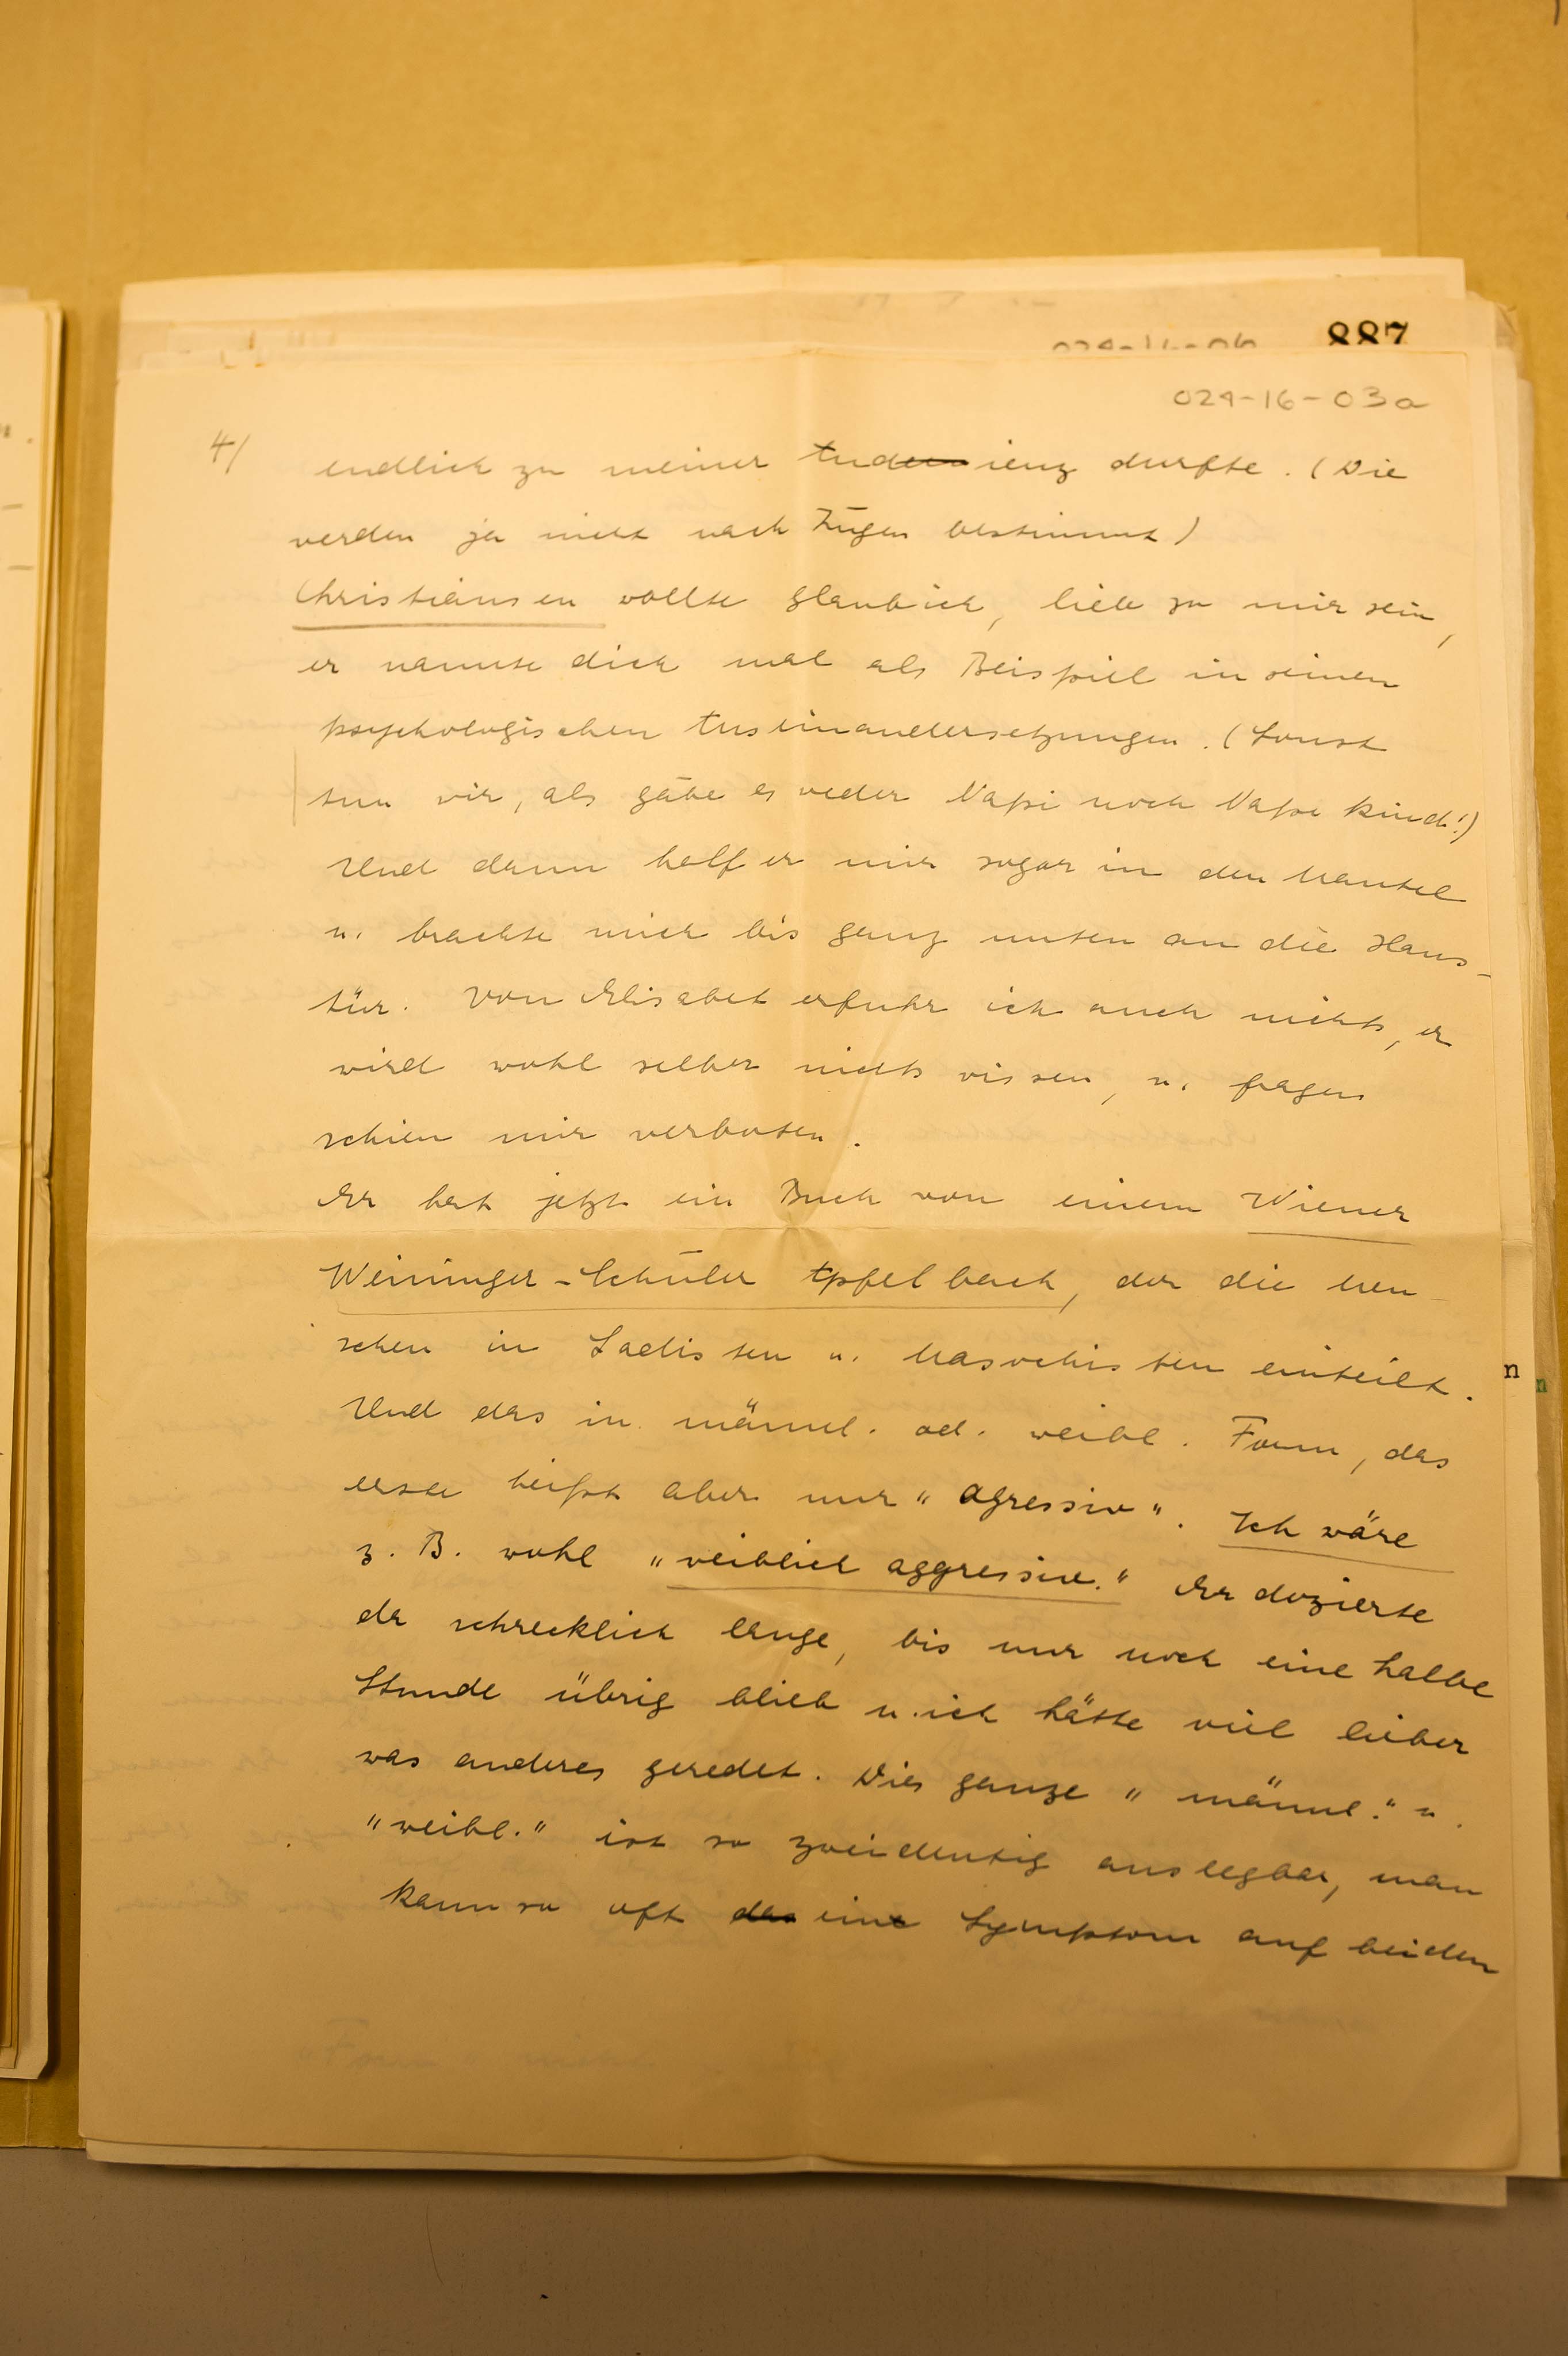 887
024-16-06
024-16-03a
4/ endlich zu meiner Audienz durfte. (Die
werden ja nicht nach Zügen bestimmt)
Christiansen wollte glaub ich, lieb zu mir sein,
er nannte dich mal als Beispiel in seinen
psychologischen Auseinandersetzungen. (Sonst
tun wir, als gäbe es weder Kind!)
Und dann half er mir sogar in den Mantel
u. brachte mich bis ganz unten an die Haus-
tür. Von Elisabet erfuhr ich auch nichts, er
wird wohl selber nichts wissen, u. fragen
schien mir verboten.
Er hat jetzt ein Buch von einem Wiener
Weininger-Schüler Apfelbach, der die Men-
schen in Sadisten u. Masochisten einteilt.
Und das in männl. od. weibl. Form, das
erste heißt aber nur "agressiv". Ich wäre
z. B. wohl "weiblich aggressiv." Er dozierte
da schrecklich lange, bis nur noch eine halbe
Stunde übrig blieb u. ich hätte viel lieber
was anderes geredet. Dies ganze "männl." u.
"weibl." ist so zweideutig auslegbar, man
kann so oft das ein Symptom auf beiden
n
n